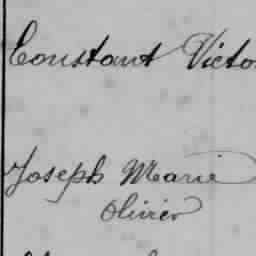 Constant Victo
Joseph Marie
Olivier